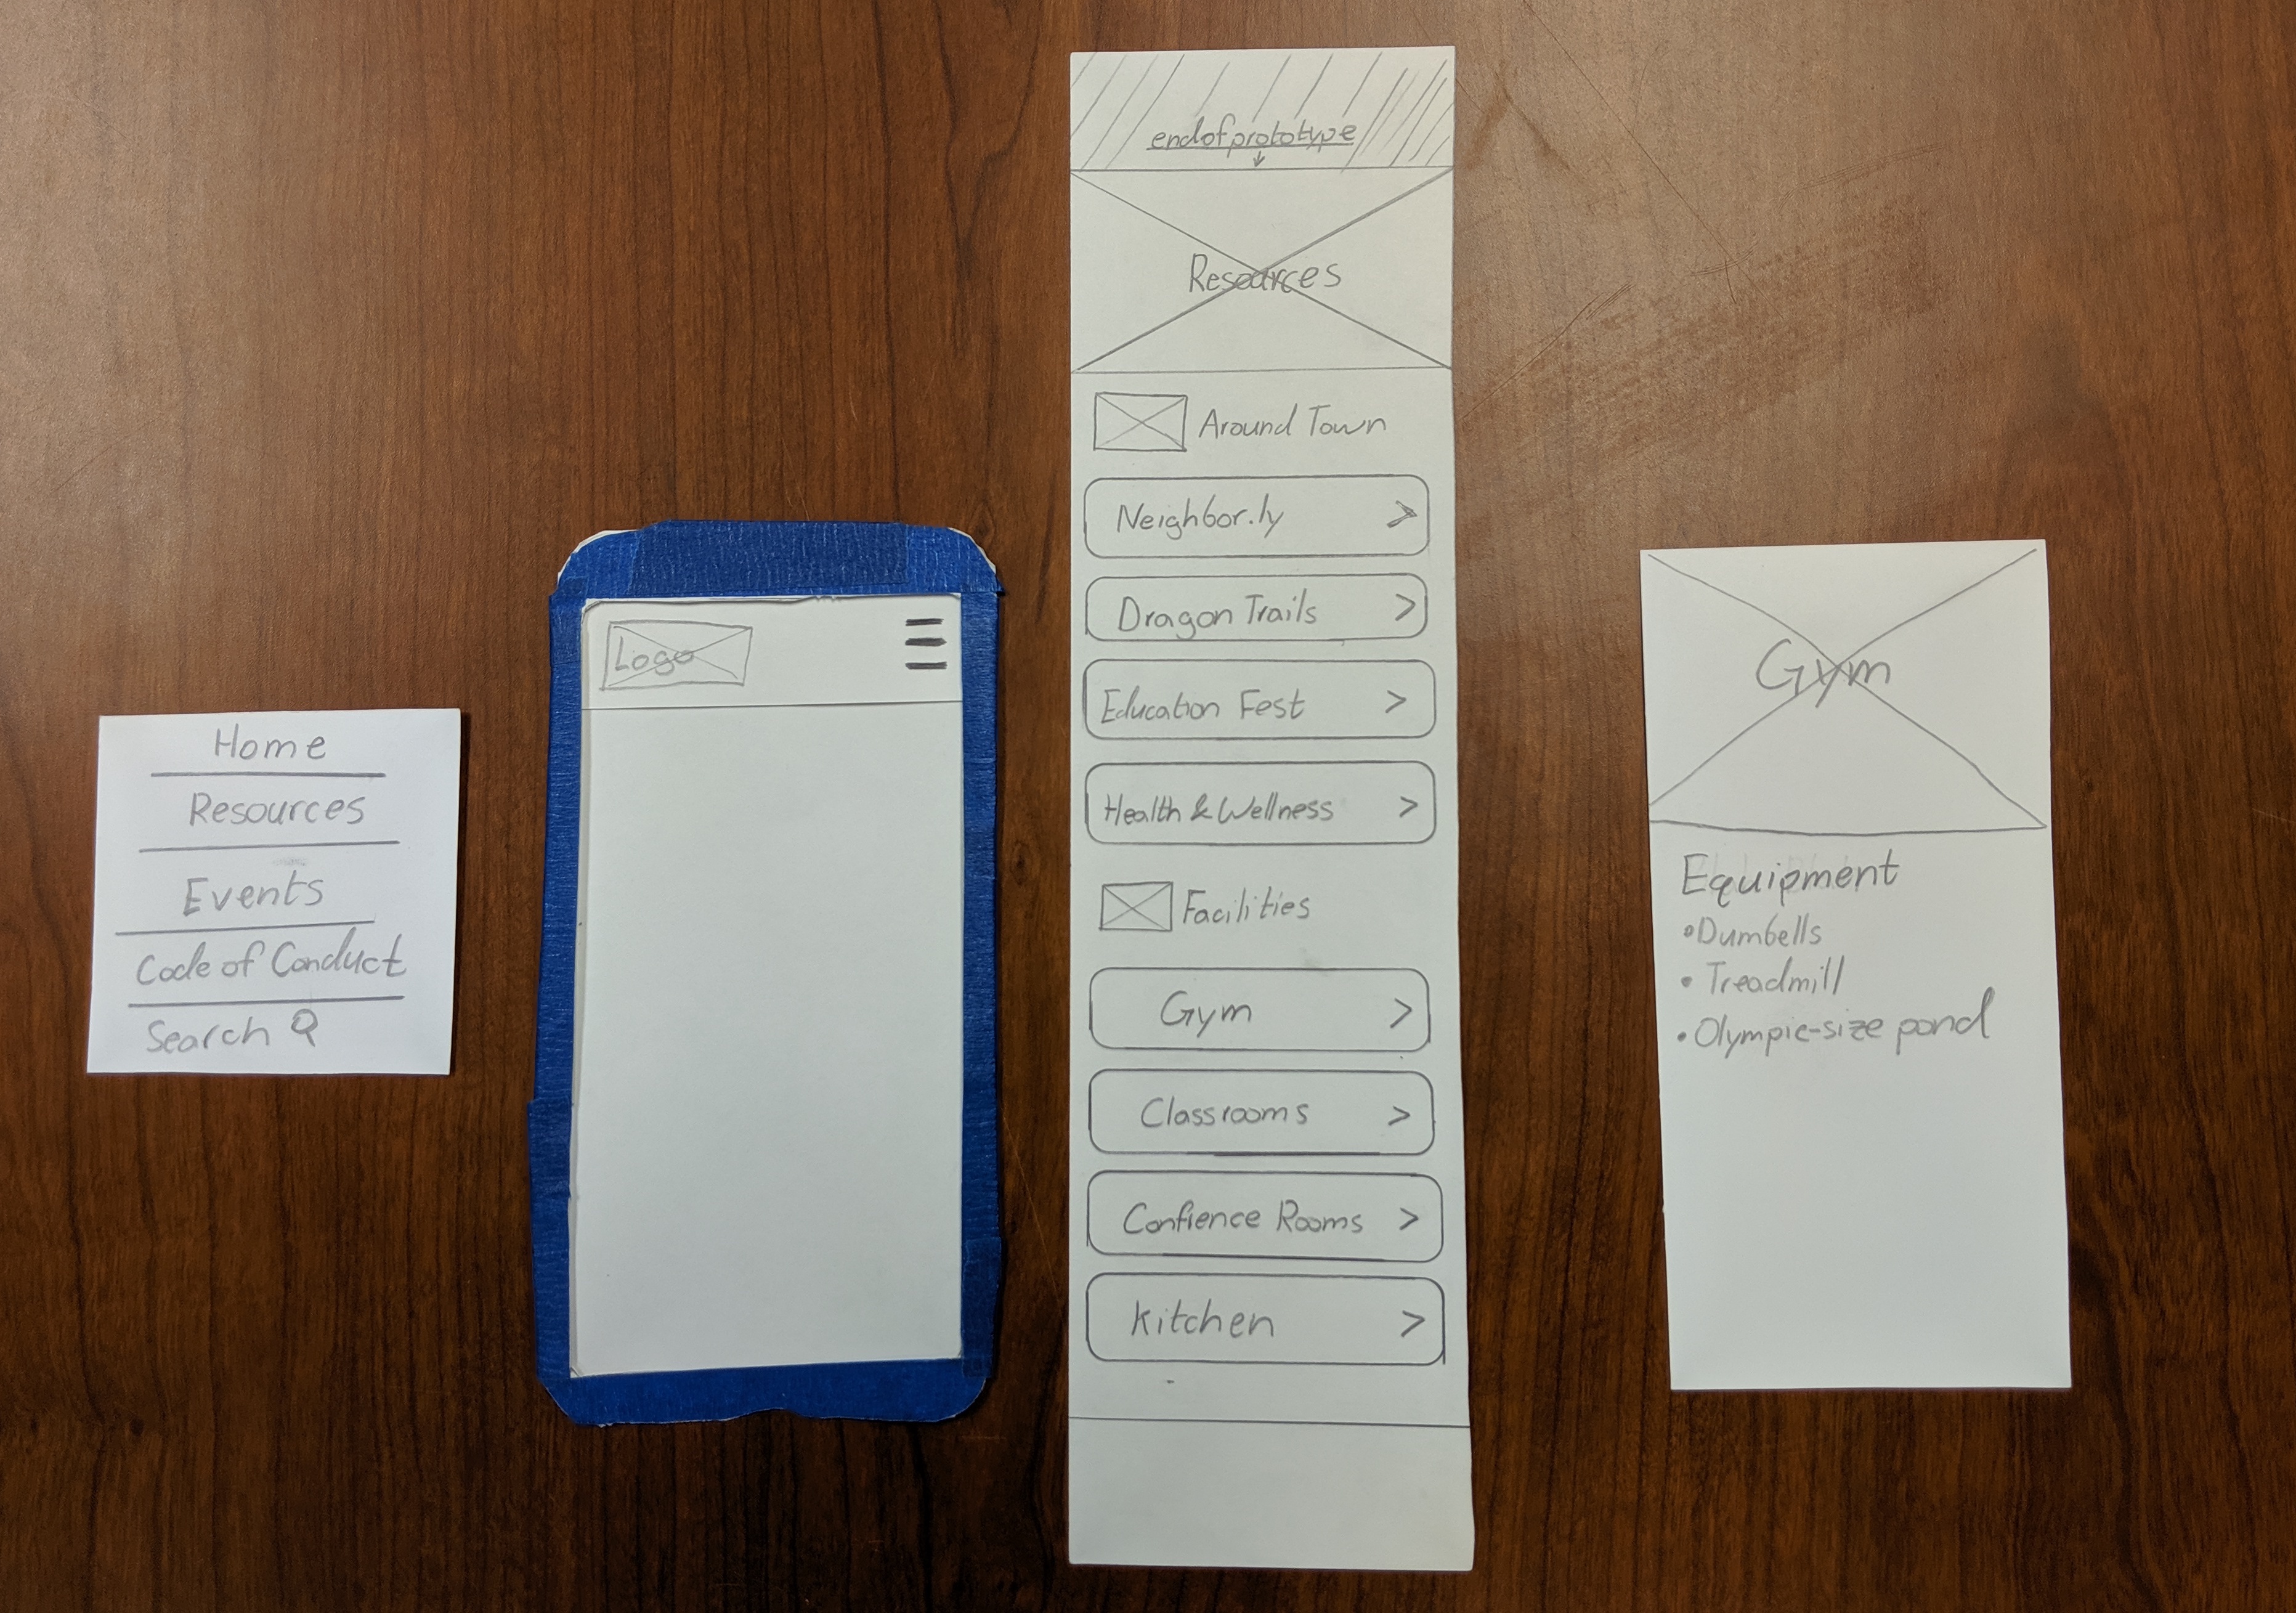 Home
Resources
Events
Code of Conduct
Search
Logo
endofprototype
Resources
Around Town
Neighbor.ly >
Dragon Trails >
Education Fest >
Health & Wellness >
Facilities
Gym >
Classrooms >
Confience Rooms >
Kitchen >
Gym
Equipment
• Dumbells
• Treadmill
• Olympic-size pond